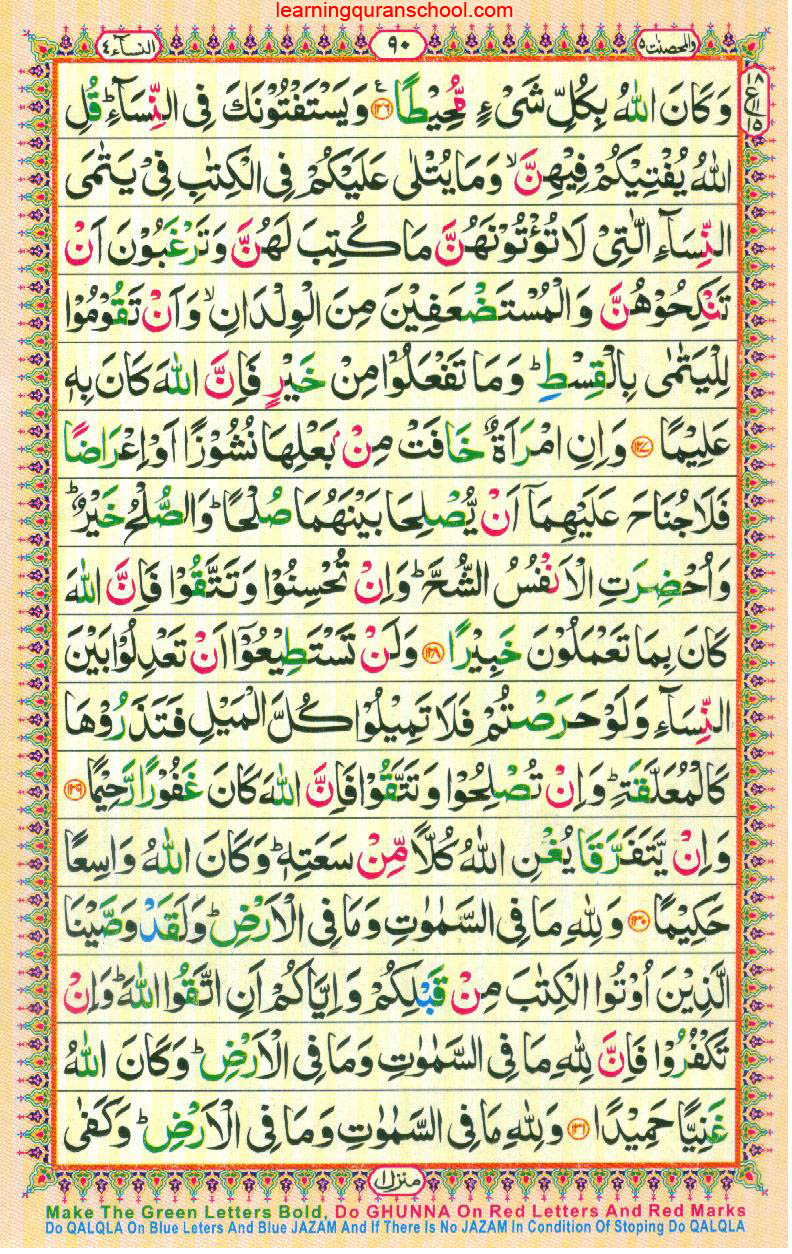 learningquranschool.com
النسآء ٤
٩٠
والمحصنت ٥
وَكَانَ اللّٰهُ بِكُلِّ شَيْءٍ مُّحِيْطًا ﴿١٢٦﴾ وَيَسْتَفْتُوْنَكَ فِي النِّسَآءِ ؕ قُلِ
١٨
ع
١١
١٥
اللّٰهُ يُفْتِيْكُمْ فِيْهِنَّ ۙ وَمَا يُتْلٰى عَلَيْكُمْ فِي الْكِتٰبِ فِيْ يَتٰمَى
النِّسَآءِ الّٰتِيْ لَا تُؤْتُوْنَهُنَّ مَا كُتِبَ لَهُنَّ وَتَرْغَبُوْنَ اَنْ
تَنْكِحُوْهُنَّ وَالْمُسْتَضْعَفِيْنَ مِنَ الْوِلْدَانِ ۙ وَاَنْ تَقُوْمُوْا
لِلْيَتٰمٰى بِالْقِسْطِ ؕ وَمَا تَفْعَلُوْا مِنْ خَيْرٍ فَاِنَّ اللّٰهَ كَانَ بِهٖ
عَلِيْمًا ﴿١٢٧﴾ وَاِنِ امْرَاَةٌ خَافَتْ مِنْۢ بَعْلِهَا نُشُوْزًا اَوْ اِعْرَاضًا
فَلَا جُنَاحَ عَلَيْهِمَآ اَنْ يُّصْلِحَا بَيْنَهُمَا صُلْحًا ؕ وَالصُّلْحُ خَيْرٌ ؕ
وَاُحْضِرَتِ الْاَنْفُسُ الشُّحَّ ؕ وَاِنْ تُحْسِنُوْا وَتَتَّقُوْا فَاِنَّ اللّٰهَ
كَانَ بِمَا تَعْمَلُوْنَ خَبِيْرًا ﴿١٢٨﴾ وَلَنْ تَسْتَطِيْعُوْٓا اَنْ تَعْدِلُوْا بَيْنَ
النِّسَآءِ وَلَوْ حَرَصْتُمْ فَلَا تَمِيْلُوْا كُلَّ الْمَيْلِ فَتَذَرُوْهَا
كَالْمُعَلَّقَةِ ؕ وَاِنْ تُصْلِحُوْا وَتَتَّقُوْا فَاِنَّ اللّٰهَ كَانَ غَفُوْرًا رَّحِيْمًا ﴿١٢٩﴾
وَاِنْ يَّتَفَرَّقَا يُغْنِ اللّٰهُ كُلًّا مِّنْ سَعَتِهٖ ؕ وَكَانَ اللّٰهُ وَاسِعًا
حَكِيْمًا ﴿١٣٠﴾ وَلِلّٰهِ مَا فِي السَّمٰوٰتِ وَمَا فِي الْاَرْضِ ؕ وَلَقَدْ وَصَّيْنَا
الَّذِيْنَ اُوْتُوا الْكِتٰبَ مِنْ قَبْلِكُمْ وَاِيَّاكُمْ اَنِ اتَّقُوا اللّٰهَ ؕ وَاِنْ
تَكْفُرُوْا فَاِنَّ لِلّٰهِ مَا فِي السَّمٰوٰتِ وَمَا فِي الْاَرْضِ ؕ وَكَانَ اللّٰهُ
غَنِيًّا حَمِيْدًا ﴿١٣١﴾ وَلِلّٰهِ مَا فِي السَّمٰوٰتِ وَمَا فِي الْاَرْضِ ؕ وَكَفٰى
منزل ١
Make The Green Letters Bold, Do GHUNNA On Red Letters And Red Marks
Do QALQLA On Blue Leters And Blue JAZAM And If There Is No JAZAM In Condition Of Stoping Do QALQLA